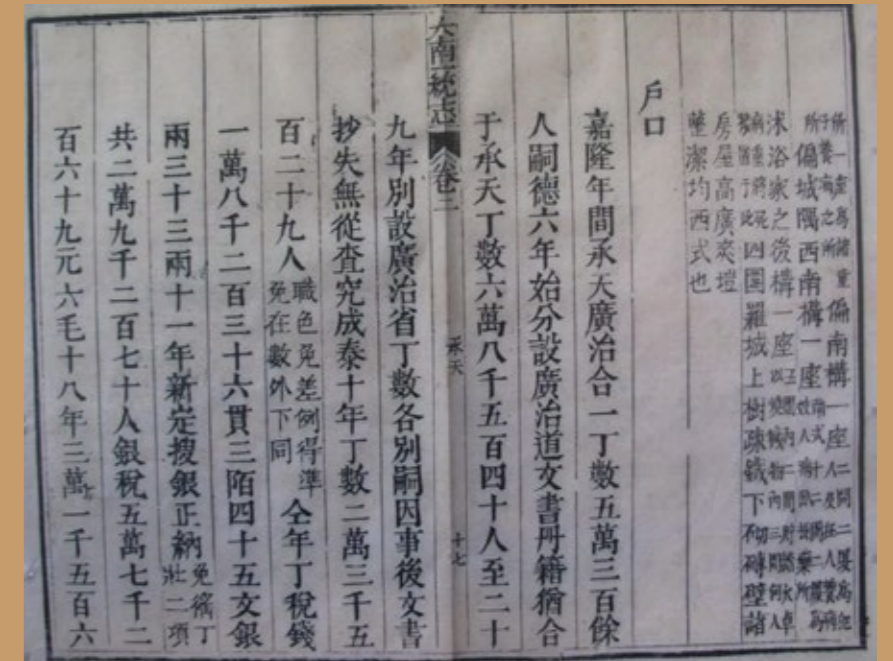 偏南構一座
所偏城隅西南構一座
沐浴家之後構一座
四圍羅城上樹疎鐵下砌磚壁諸
房屋高廣爽塏
整潔均西式也
戶口
嘉隆年間承天廣治合一丁數五萬三百餘
人嗣德六年始分設廣治道文書冊籍猶合
于承天丁數六萬八千五百四十人至二十
大南一統志 卷三 承天 十七
九年別設廣治省丁數各別嗣因事後文書
抄失無從查究成泰十年丁數二萬三千五
百二十九人職色免差例得準免在數外下同仝年丁稅錢
一萬八千二百三十六貫三陌四十五文銀
兩三十三兩十一年新定搜銀正納免徭丁壯二項
共二萬九千二百七十人銀稅五萬七千二
百六十九元六毛十八年三萬一千五百六